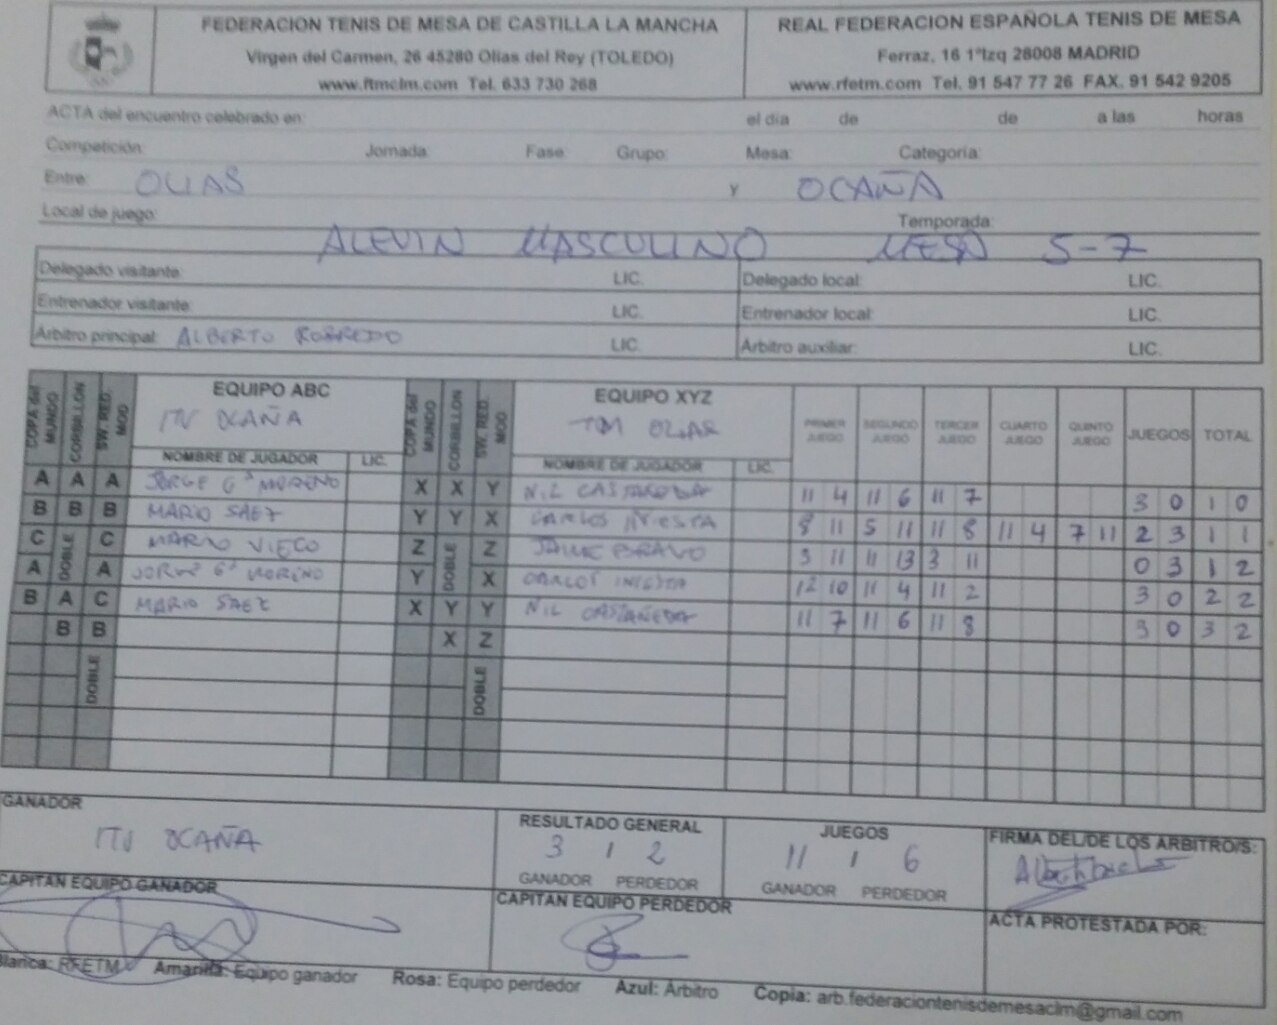 FEDERACION TENIS DE MESA DE CASTILLA LA MANCHA
Virgen del Carmen, 26 45280 Olias del Rey (TOLEDO)
www.ftmclm.com Tel. 633 730 268
REAL FEDERACION ESPAÑOLA TENIS DE MESA
Ferraz, 16 1ºIzq 28008 MADRID
www.rfetm.com Tel. 91 547 77 26 FAX. 91 542 9205
ACTA del encuentro celebrado en: el día de de a las horas
Competición: Jornada: Fase: Grupo: Mesa: Categoría:
Entre: OLIAS y OCAÑA
Local de juego: Temporada:
ALEVIN MASCULINO MESA 5-7
Delegado visitante: LIC. Delegado local: LIC.
Entrenador visitante: LIC. Entrenador local: LIC.
Arbitro principal: ALBERTO ROBREDO LIC. Arbitro auxiliar: LIC.
COPA del MUNDO CORBILLON SW. RED. MOD EQUIPO ABC COPA del MUNDO CORBILLON SW. RED. MOD EQUIPO XYZ PRIMER JUEGO SEGUNDO JUEGO TERCER JUEGO CUARTO JUEGO QUINTO JUEGO JUEGOS TOTAL
ITV OCAÑA TM OLIAS
NOMBRE DE JUGADOR LIC. NOMBRE DE JUGADOR LIC.
A A A JORGE Gª MORENO X X Y NIL CASTAÑEDA 11 4 11 6 11 7 3 0 1 0
B B B MARIO SAEZ Y Y X CARLOS INIESTA 8 11 5 11 11 8 11 4 7 11 2 3 1 1
C DOBLE C MARIO VIECO Z DOBLE Z JAIME BRAVO 3 11 11 13 3 11 0 3 1 2
A A JORGE Gª MORENO Y X CARLOS INIESTA 12 10 11 4 11 2 3 0 2 2
B A C MARIO SAEZ X Y Y NIL CASTAÑEDA 11 7 11 6 11 8 3 0 3 2
B B X Z
DOBLE DOBLE
GANADOR
ITV OCAÑA
RESULTADO GENERAL
3 / 2
GANADOR PERDEDOR
JUEGOS
11 / 6
GANADOR PERDEDOR
FIRMA DEL/DE LOS ARBITRO/S:
CAPITAN EQUIPO GANADOR
CAPITAN EQUIPO PERDEDOR
ACTA PROTESTADA POR:
Blanca: RFETM Amarilla: Equipo ganador Rosa: Equipo perdedor Azul: Arbitro Copia: arb.federaciontenisdemesaclm@gmail.com